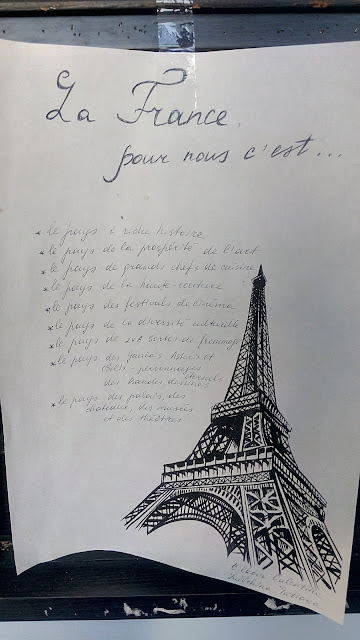 La France,
pour nous c'est...
* le pays à riche histoire
* le pays de la prospérité de l'art
* le pays de grands chefs de cuisine
* le pays de la haute couture
* le pays des festivals de cinéma
* le pays de la diversité culturelle
* le pays de sortes de fromage
* le pays des Gaulois Asterix et
Obelix - personnages
éternels
des bandes dessinés
* le pays des palais, des
chateaux, des musées
et des théâtres